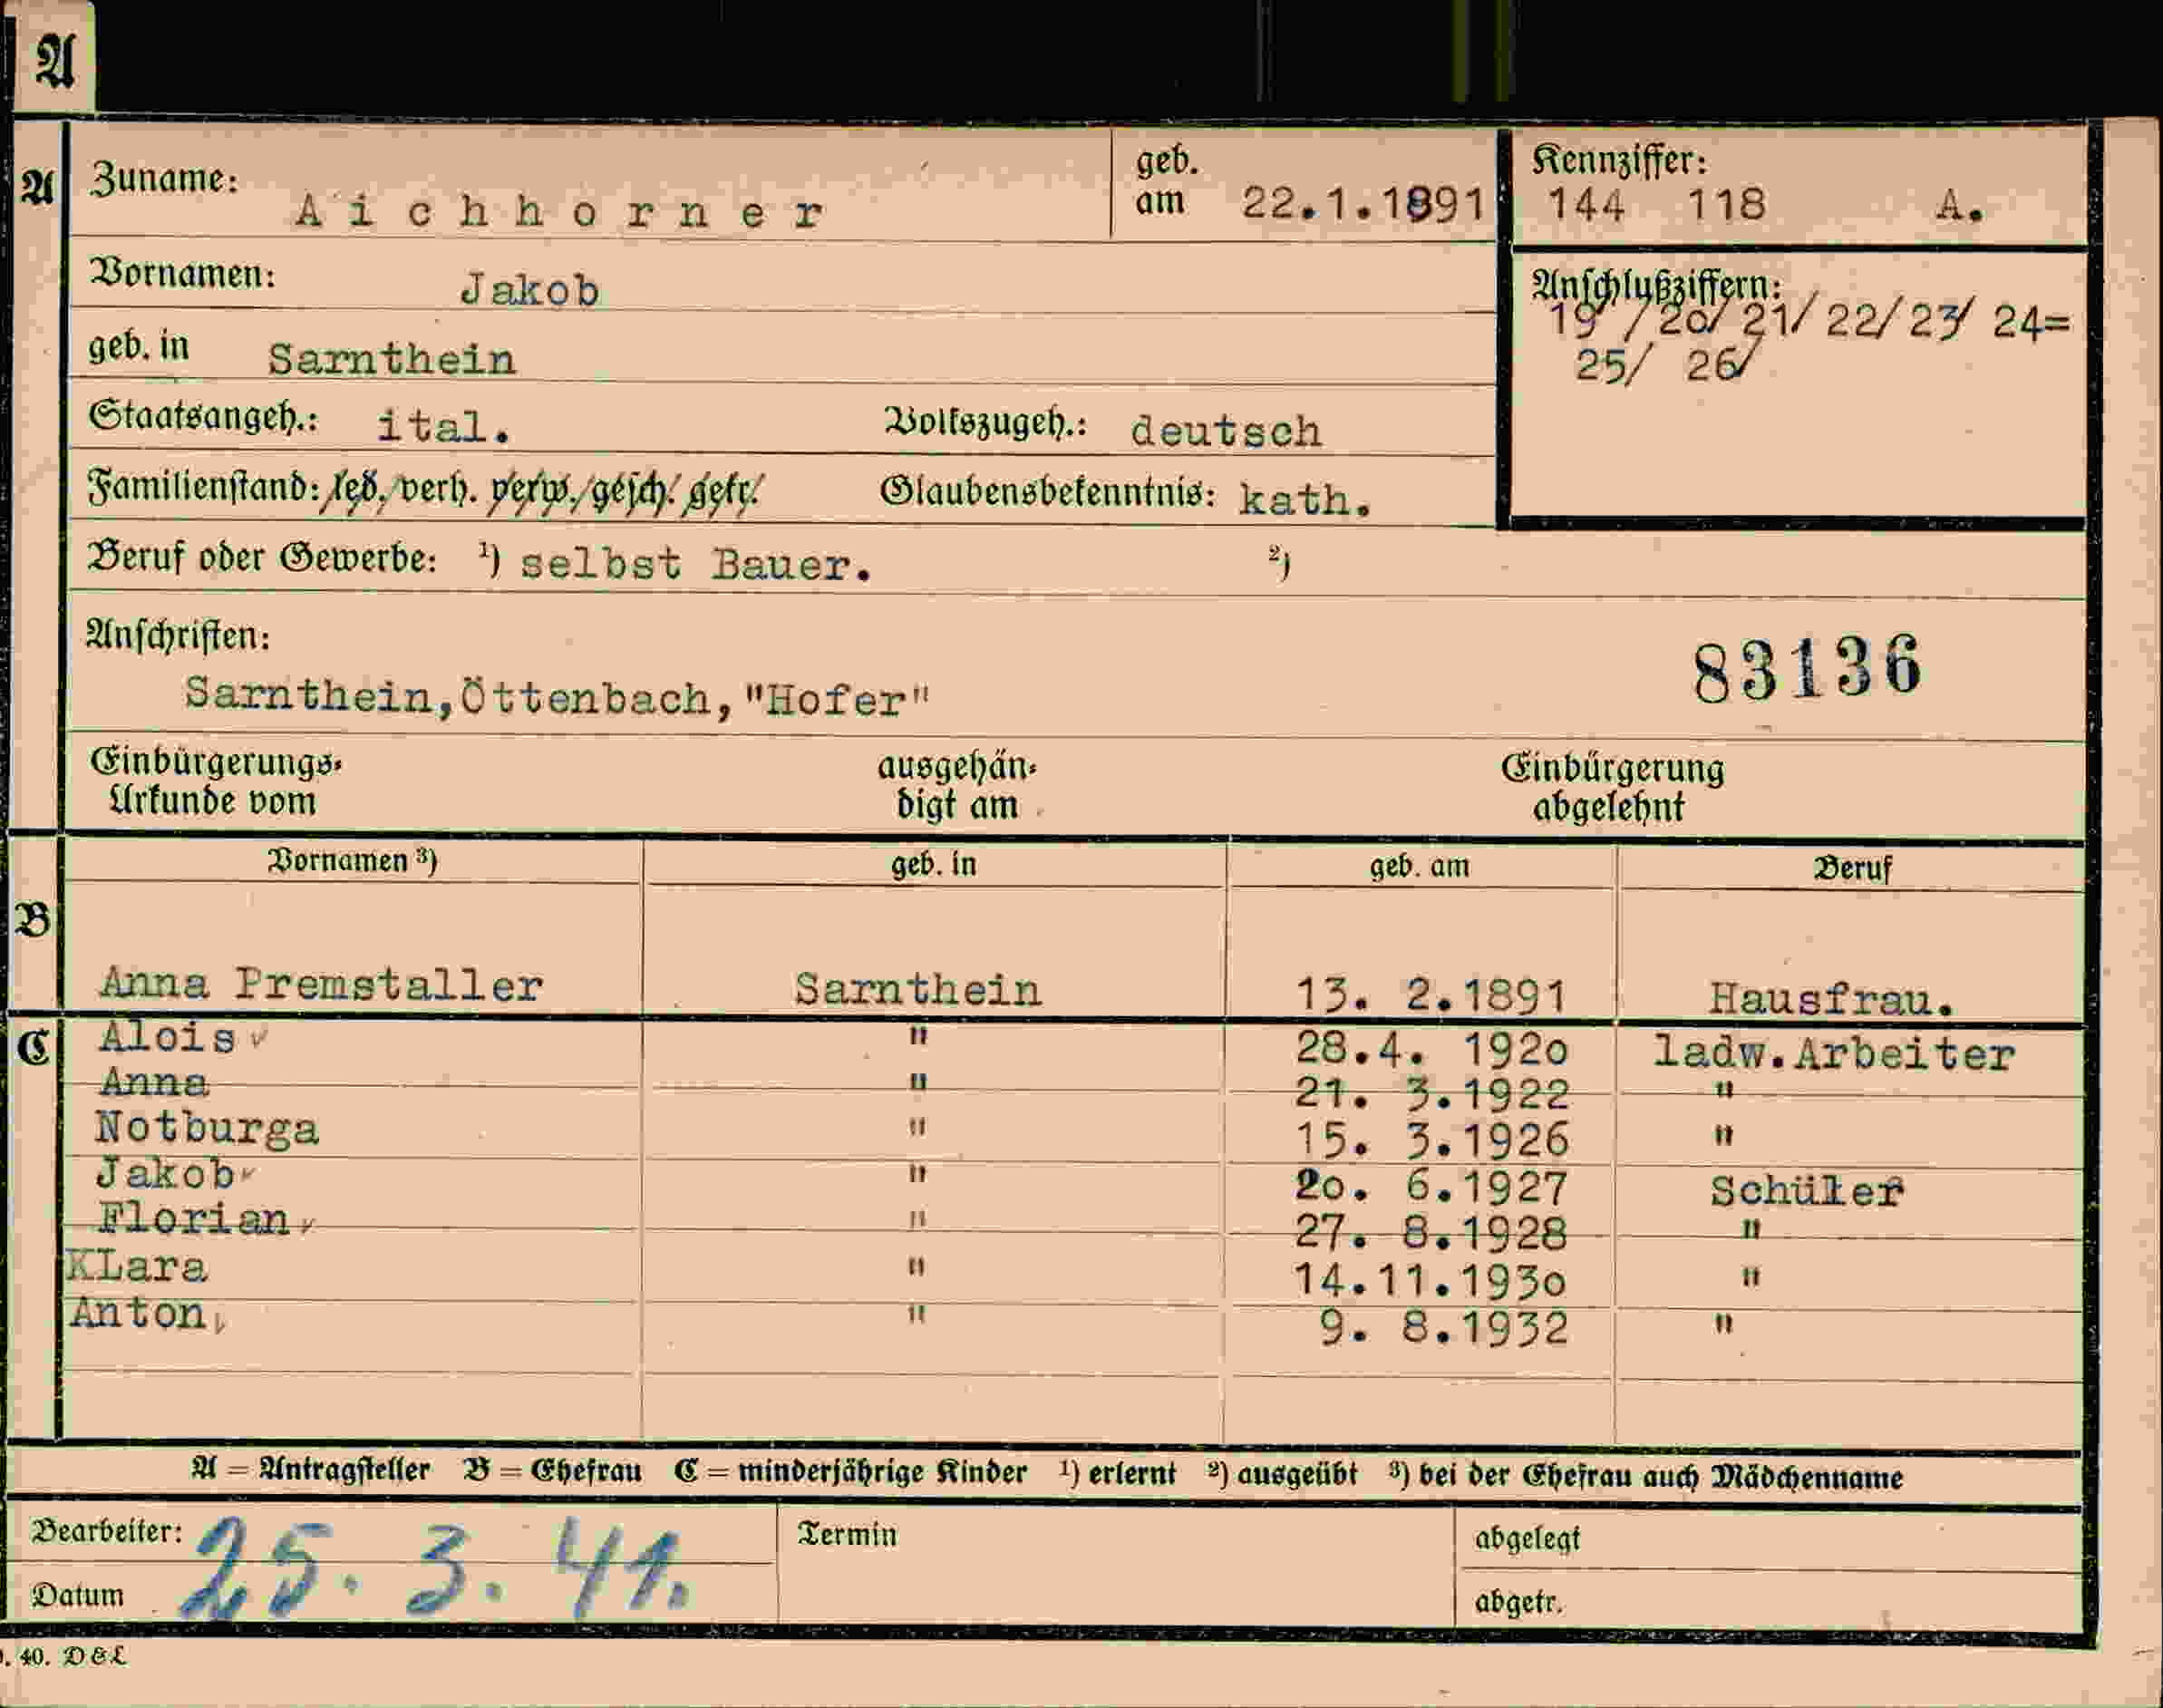 A
A Zuname: Aichhorner geb. am 22.1.1891 Kennziffer: 144 118 A.
Vornamen: Jakob Anschlußziffern: 19 /20/ 21/ 22/ 23/ 24=
25/ 26/
geb. in Sarnthein
Staatsangeh.: ital. Volkszugeh.: deutsch
Familienstand: led. verh. verw. gesch. getr. Glaubensbekenntnis: kath.
Beruf oder Gewerbe: ¹) selbst Bauer. ²)
Anschriften: 83136
Sarnthein, Öttenbach, "Hofer"
Einbürgerungs- ausgehän- Einbürgerung
Urkunde vom digt am abgelehnt
Vornamen ³) geb. in geb. am Beruf
B
Anna Premstaller Sarnthein 13. 2.1891 Hausfrau.
C Alois " 28.4. 1920 ladw.Arbeiter
Anna " 21. 3.1922 "
Notburga " 15. 3.1926 "
Jakob " 20. 6.1927 Schüler
Florian " 27. 8.1928 "
KLara " 14.11.1930 "
Anton " 9. 8.1932 "
A = Antragsteller B = Ehefrau C = minderjährige Kinder ¹) erlernt ²) ausgeübt ³) bei der Ehefrau auch Mädchenname
Bearbeiter: Termin abgelegt
Datum 25. 3. 41. abgetr.
40. D & L